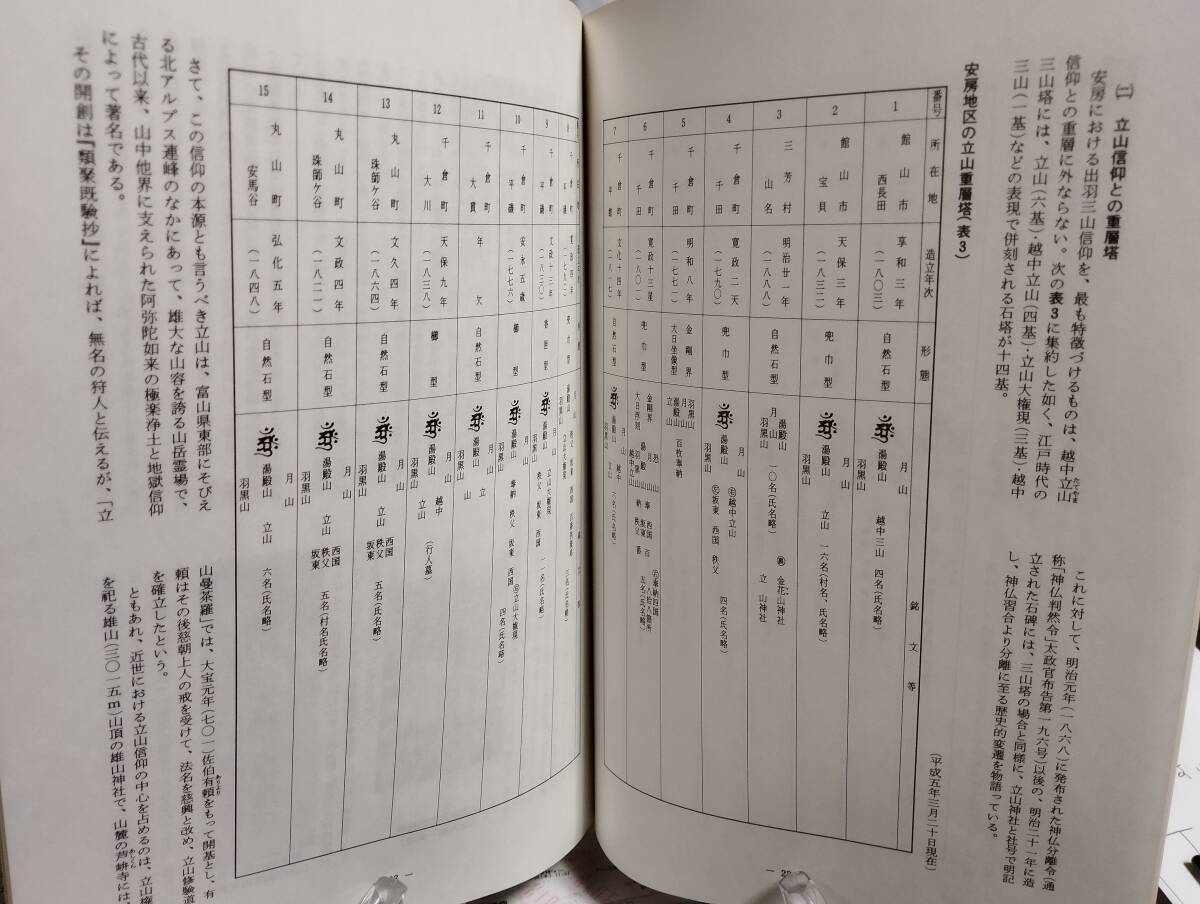 ㈡　立山信仰との重層塔
安房における出羽三山信仰を、最も特徴づけるものは、越中立山
信仰との重層に外ならない。次の表３に集約した如く、江戸時代の
三山塔には、立山（六基）・越中立山（四基）・立山大権現（三基）・越中
三山（一基）などの表現で併刻される石塔が十四基。
これに対して、明治元年（一八六八）に発布された神仏分離令（通
称「神仏判然令」太政官布告第一九六号）以後の、明治二十一年に造
立された石碑には、三山塔の場合と同様に、立山神社と社号で明記
し、神仏習合より分離に至る歴史的変遷を物語っている。
安房地区の立山重層塔（表３）
（平成五年三月二十日現在）
番号　所在地　造立年次　形態　銘文等
1　館山市　西長田　享和三年（一八〇三）　自然石型　月山　湯殿山　羽黒山　越中三山　四名（氏名略）
2　館山市　宝貝　天保三年（一八三二）　兜巾型　月山　湯殿山　羽黒山　立山　一六名（村名、氏名略）
3　三芳村　山名　明治廿一年（一八八八）　自然石型　湯殿山　月山　羽黒山　一〇名（氏名略）　㊦裏　金花山神社　立山神社
4　千倉町　千田　寛政二天（一七九〇）　兜巾型　月山　湯殿山　羽黒山　㊨越中立山　㊧坂東　西国　秩父　四名（氏名略）
5　千倉町　千田　明和八年　金剛界大日坐像型　羽黒山　月山　湯殿山　立山　百枚奉納
6　千倉町　千田　寛政十三星　兜巾型　金剛界大日坐刻
7　千倉町　文化十四年（一八一七）　自然石型　湯殿山　羽黒山　越中　立山　六名（氏名略）
8　千倉町　兜巾型　月山　湯殿山　羽黒山
9　千倉町　平磯　文政十三年（一八三〇）　月山　湯殿山　羽黒山　立山大権現　秩父　坂東　西国　一一名（氏名略）
10　千倉町　平磯　安永五歳（一七七六）　櫛型　月山　湯殿山　羽黒山　奉納　秩父　坂東　西国　立山大権現　四名（氏名略）
11　千倉町　大貫　年欠　自然石型　月山　湯殿山　羽黒山　立山
12　千倉町　大川　天保九年（一八三八）　櫛型　月山　湯殿山　羽黒山　越中　立山　（行人墓）
13　丸山町　珠師ケ谷　文久四年（一八六四）　自然石型　月山　湯殿山　羽黒山　立山　西国　秩父　坂東　五名（氏名略）
14　丸山町　珠師ケ谷　文政四年（一八二一）　自然石型　月山　湯殿山　羽黒山　立山　西国　秩父　坂東　五名（村名氏名略）
15　丸山町　安馬谷　弘化五年（一八四八）　自然石型　月山　湯殿山　羽黒山　立山　六名（氏名略）
さて、この信仰の本源とも言うべき立山は、富山県東部にそびえ
る北アルプス連峰のなかにあって、雄大な山容を誇る山岳霊場で、
古代以来、山中他界に支えられた阿弥陀如来の極楽浄土と地獄信仰
によって著名である。
その開創は『類聚既験抄』によれば、無名の狩人と伝えるが、「立
山曼荼羅」では、大宝元年（七〇一）佐伯有頼をもって開基とし、有
頼はその後慈朝上人の戒を受けて、法名を慈興と改め、立山修験道
を確立したという。
ともあれ、近世における立山信仰の中心を占めるのは、立山権
を祀る雄山（三〇一五ｍ）山頂の雄山神社で、山麓の芦峅寺には、